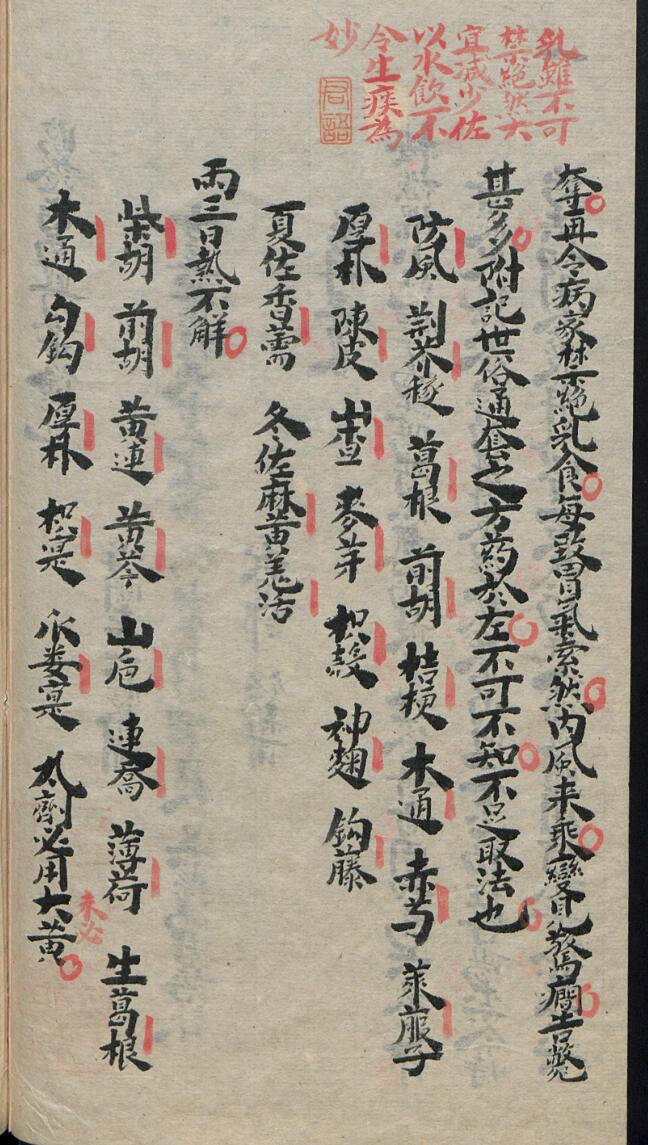 乳雖不可
禁絕然大
宜減少佐
以水飲不
令生痰為
妙
君語
奪再令病家禁絕乳食每致胃氣索然內風來乘變見驚癇告斃
甚多附記世俗通套之方葯於左不可不知不足取法也
防風 荊芥穗 葛根 前胡 桔梗 木通 赤芍 萊服子
厚朴 陳皮 山查 麥芽 枳殼 神麯 鉤藤
夏佐香薷 冬佐麻黄羌活
兩三日熱不解
柴胡 前胡 黄連 黄芩 山梔 連喬 薄荷 生葛根
木通 勾鈎 厚朴 枳寔 爪蔞寔 丸劑必用大黄
未必